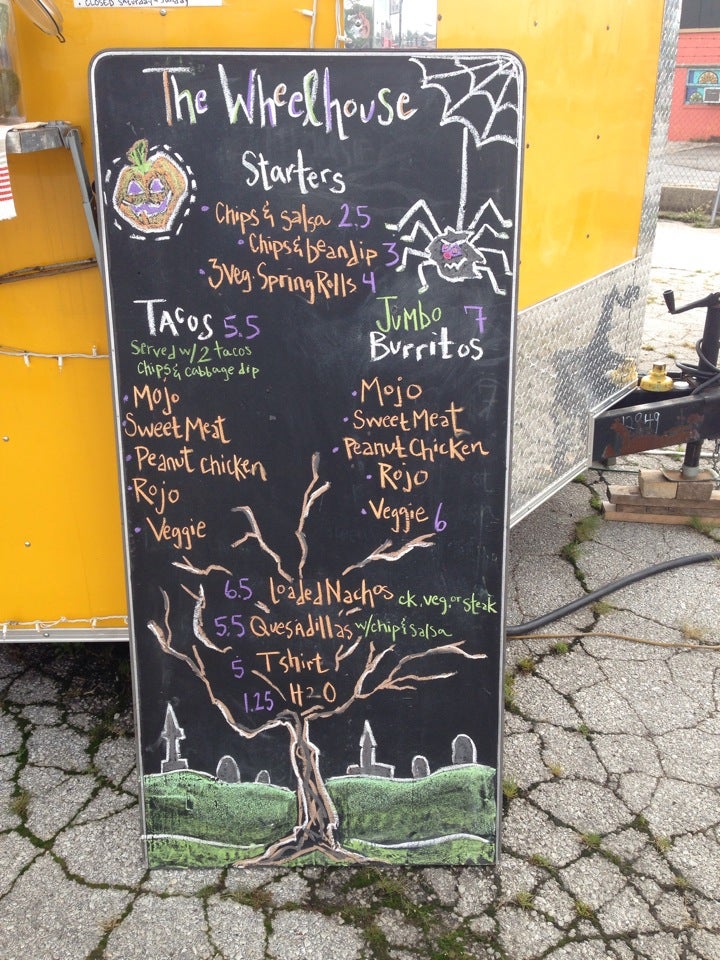 CLOSED Saturday & Sunday
The Wheelhouse
Starters
• Chips & salsa 2.5
• Chips & bean dip 3
• 3 Veg. Spring Rolls 4
Tacos 5.5
Served w/ 2 tacos
Chips & cabbage dip
• Mojo
• Sweet Meat
• Peanut chicken
• Rojo
• Veggie
Jumbo 7
Burritos
• Mojo
• Sweet Meat
• Peanut Chicken
• Rojo
• Veggie 6
6.5 Loaded Nachos ck, veg, or steak
5.5 Quesadillas w/ chips & salsa
5 Tshirt
1.25 H2O
12949